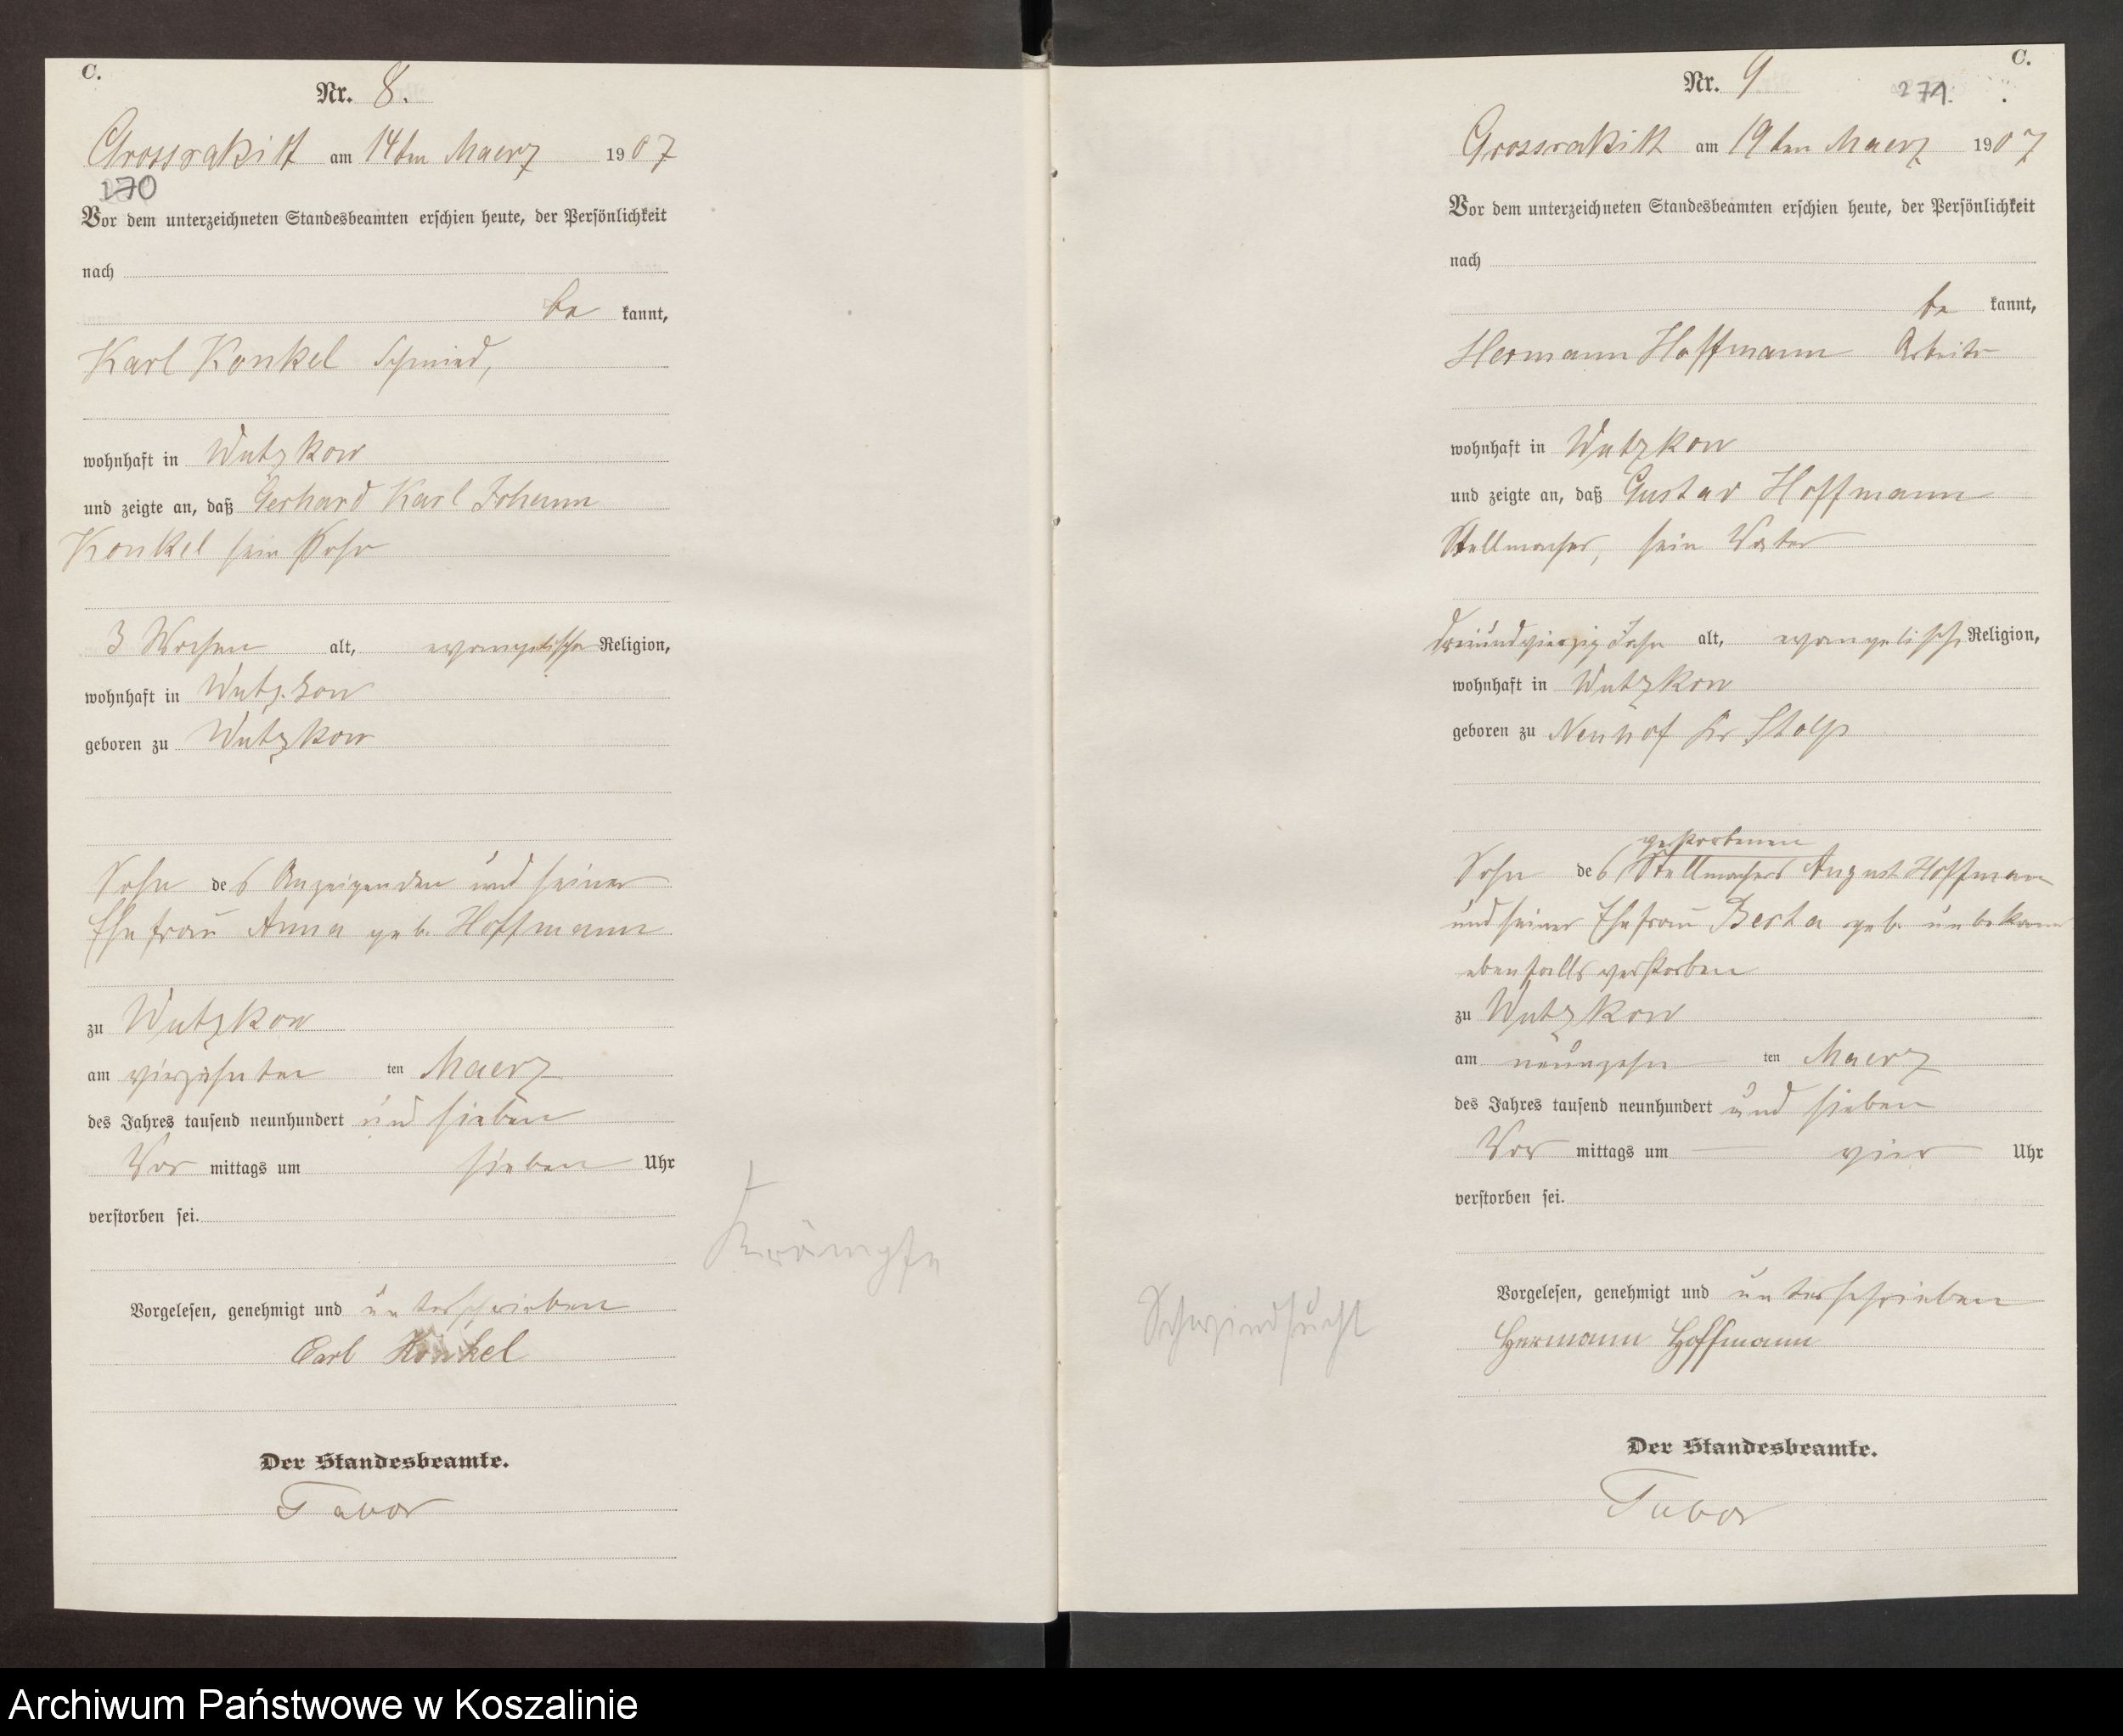 C.
Nr. 8.
Grossrakitt am 14ten Maerz 1907
270
Vor dem unterzeichneten Standesbeamten erschien heute, der Persönlichkeit
nach
be kannt,
Karl Konkel Schmied,
wohnhaft in Wutzkow
und zeigte an, daß Gerhard Karl Johann
Konkel sein Sohn
3 Wochen alt, evangelischer Religion,
wohnhaft in Wutzkow
geboren zu Wutzkow
Sohn des Anzeigenden und seiner
Ehefrau Anna geb. Hoffmann
zu Wutzkow
am vierzehnten ten Maerz
des Jahres tausend neunhundert und sieben
Vor mittags um sieben Uhr
verstorben sei.
Krämpfe
Vorgelesen, genehmigt und unterschrieben
Carl Konkel
Der Standesbeamte.
Tabor
C.
Nr. 9
271.
Grossrakitt am 19ten Maerz 1907
Vor dem unterzeichneten Standesbeamten erschien heute, der Persönlichkeit
nach
be kannt,
Hermann Hoffmann Arbeiter
wohnhaft in Wutzkow
und zeigte an, daß Gustav Hoffmann
Stellmacher, sein Vater
dreiundvierzig Jahr alt, evangelische Religion,
wohnhaft in Wutzkow
geboren zu Neuhof Kr Stolp
gestorbenen
Sohn des Stellmachers August Hoffmann
und seiner Ehefrau Berta geb. unbekannt
ebenfalls verstorben
zu Wutzkow
am neunzehn ten Maerz
des Jahres tausend neunhundert und sieben
Vor mittags um vier Uhr
verstorben sei.
Schwindsucht
Vorgelesen, genehmigt und unterschrieben
Hermann Hoffmann
Der Standesbeamte.
Tabor
Archiwum Państwowe w Koszalinie